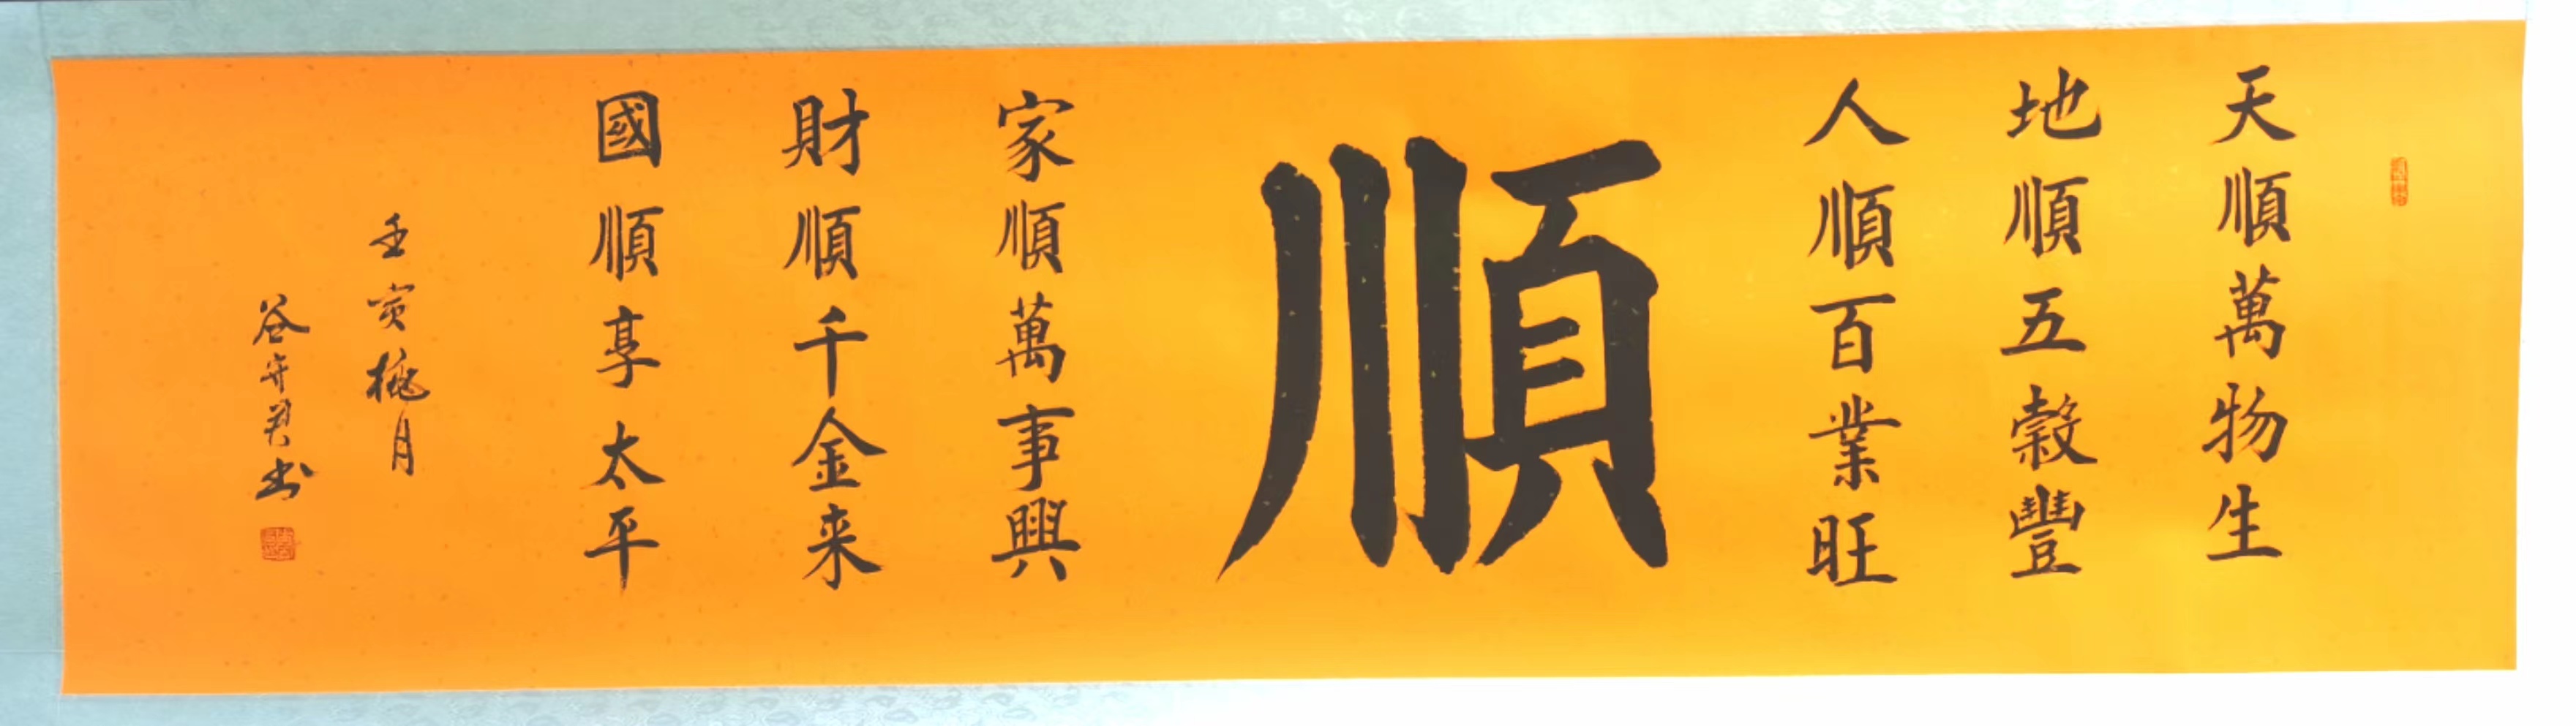 天順萬物生
地順五穀豐
人順百業旺
順
家順萬事興
財順千金来
國順享太平
壬寅桃月
谷守君书